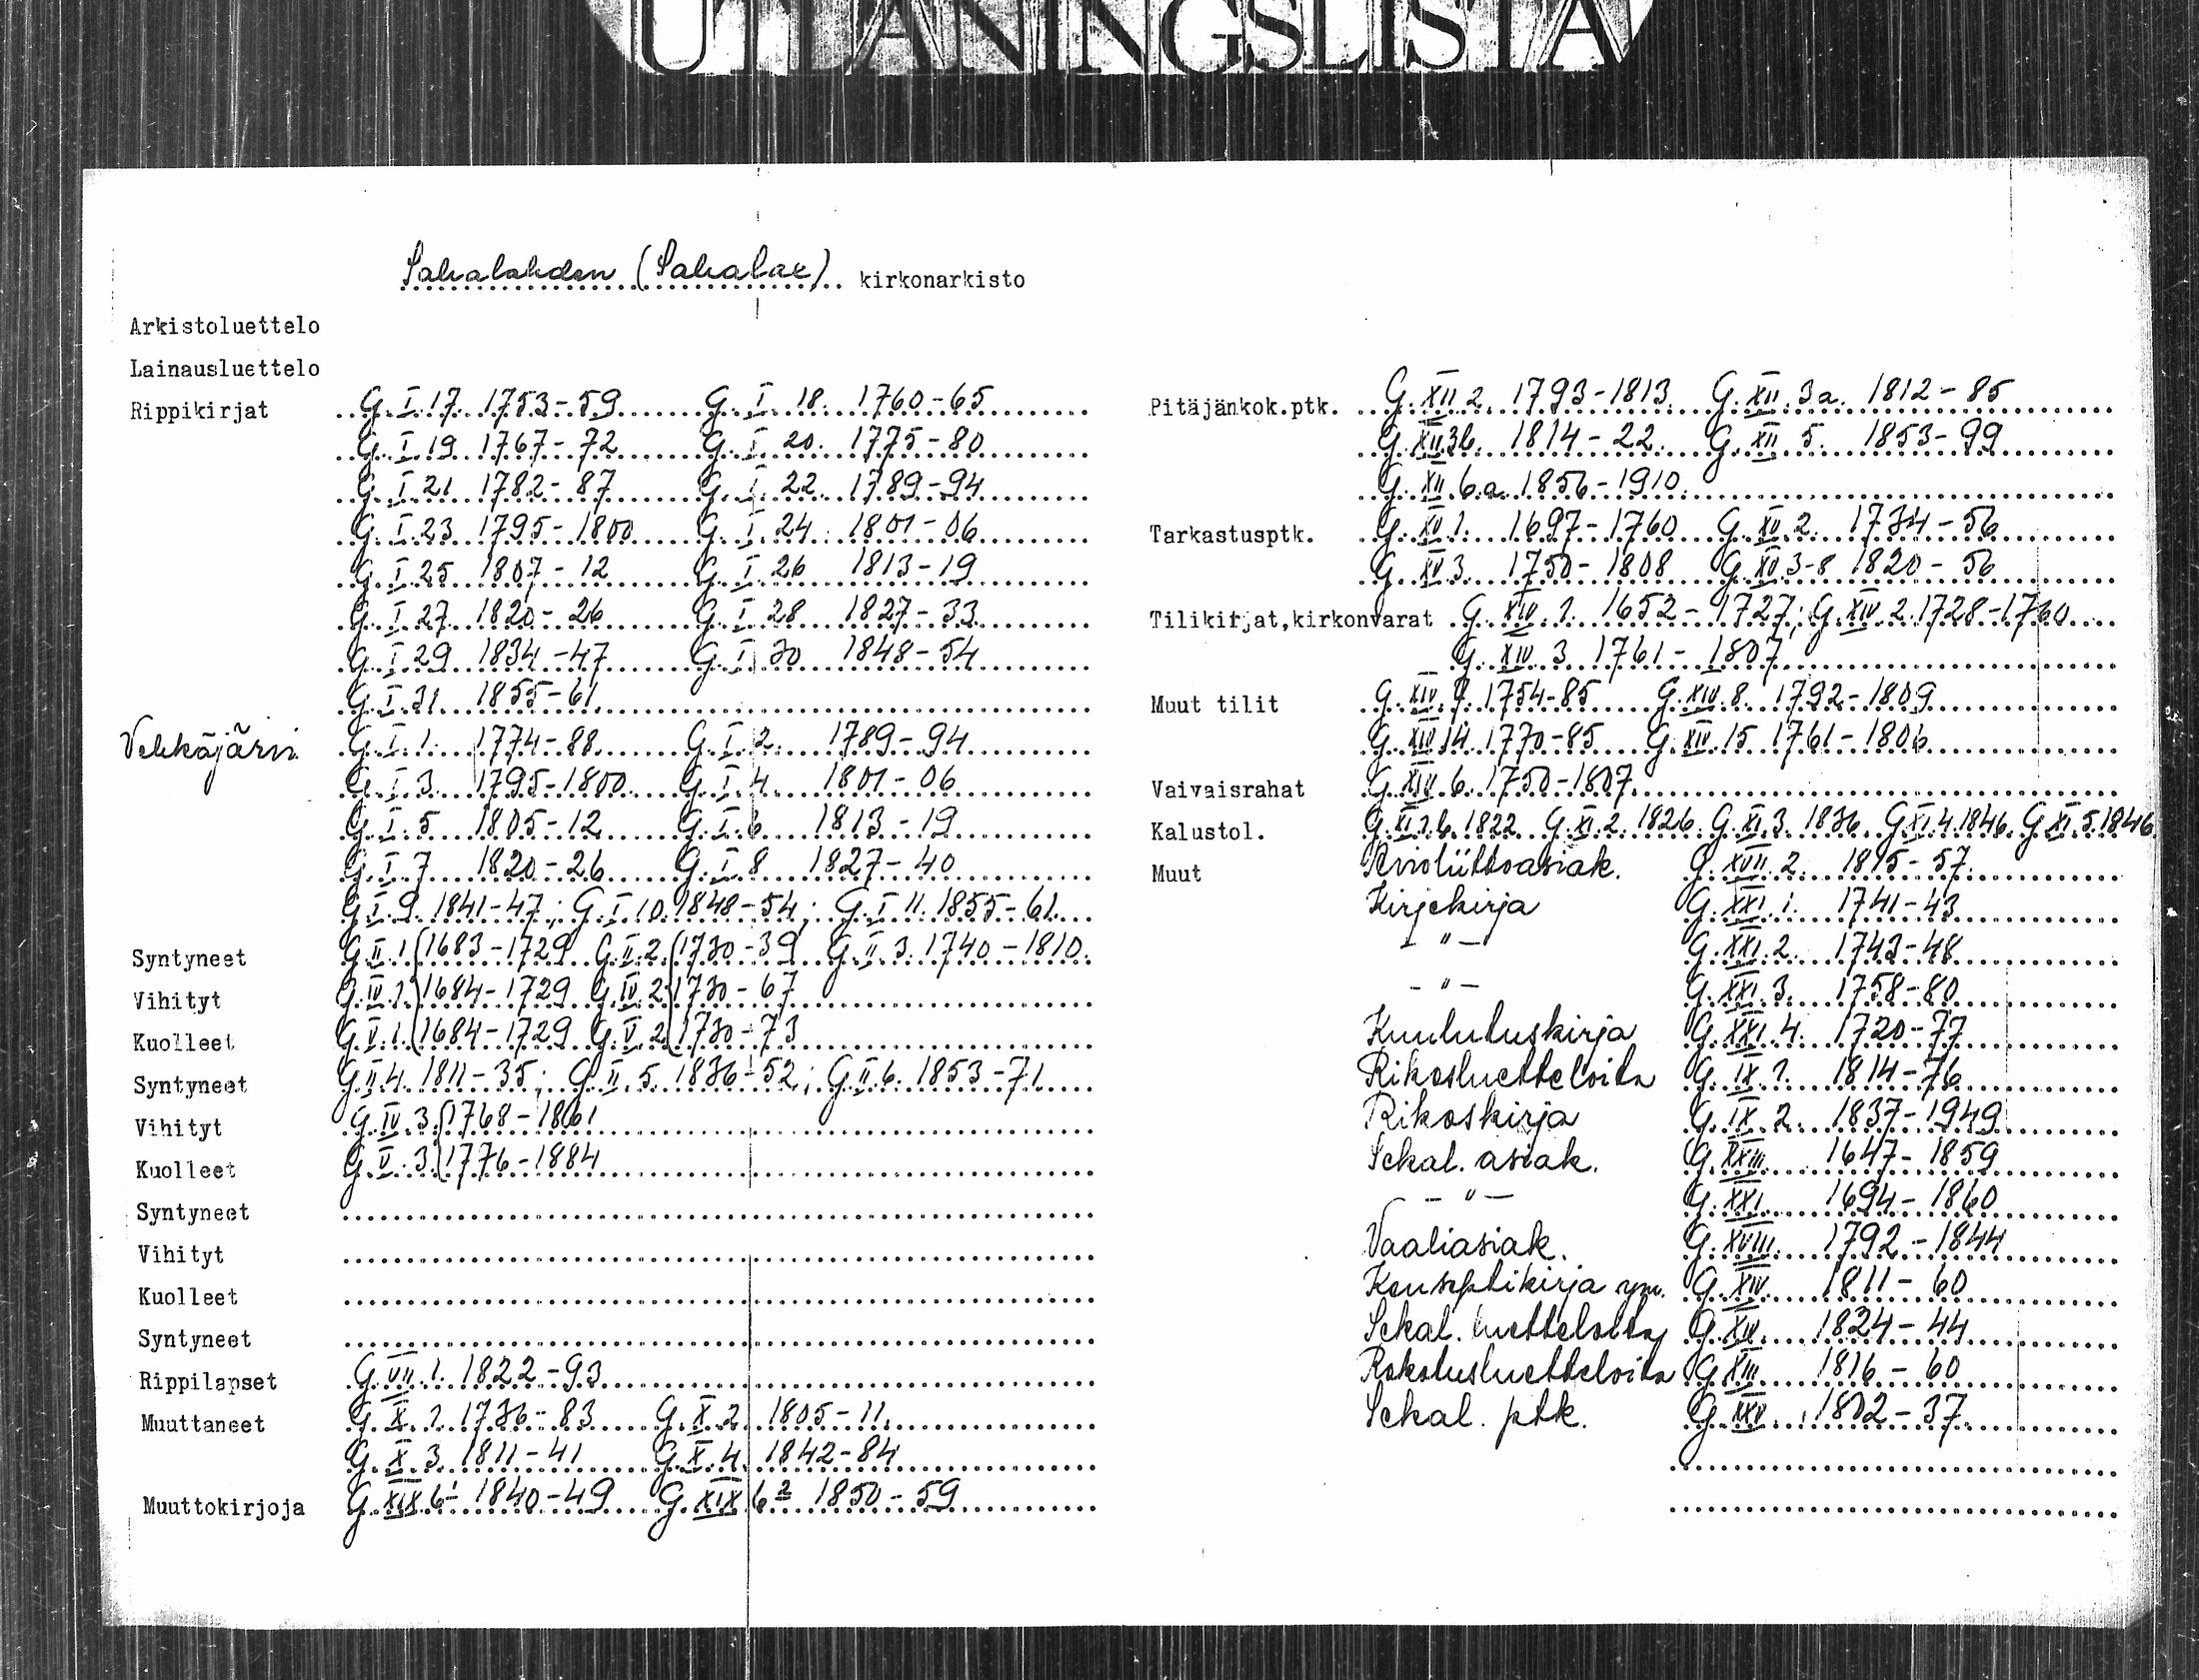 UTLÅNINGSLISTA
Sahalahden (Sahalax) kirkonarkisto
Arkistoluettelo
Lainausluettelo
Rippikirjat G. I. 17. 1753-59 G. I. 18. 1760-65
G. I. 19. 1767-72 G. I. 20. 1775-80
G. I. 21 1782-87 G. I. 22. 1789-94
G. I. 23 1795-1800 G. I. 24 1801-06
G. I. 25 1807-12 G. I. 26 1813-19
G. I. 27 1820-26 G. I. 28 1827-33
G. I. 29 1834-47 G. I. 30 1848-54
G. I. 31 1855-61
Vehkäjärvi G. I. 1. 1774-88 G. I. 2. 1789-94
G. I. 3. 1795-1800 G. I. 4. 1801-06
G. I. 5 1805-12 G. I. 6 1813-19
G. I. 7 1820-26 G. I. 8 1827-40
G. I. 9. 1841-47; G. I. 10. 1848-54; G. I. 11. 1855-61
Syntyneet G. II. 1. 1683-1729 G. II. 2. 1730-39 G. II. 3. 1740-1810.
Vihityt G. IV. 1. 1684-1729 G. IV. 2. 1730-67
Kuolleet G. V. 1. 1684-1729 G. V. 2. 1730-73
Syntyneet G. II. 4. 1811-35; G. II. 5. 1836-52; G. II. 6. 1853-71
Vihityt G. IV. 3. 1768-1861
Kuolleet G. V. 3. 1776-1884
Syntyneet
Vihityt
Kuolleet
Syntyneet
Rippilapset G. VII. 1. 1822-93
Muuttaneet G. X. 1. 1736-83 G. X. 2. 1805-11.
G. X. 3. 1811-41 G. X. 4. 1842-84
Muuttokirjoja G. XIX 6¹ 1840-49 G. XIX 6² 1850-59
Pitäjänkok.ptk. G. XII 2. 1793-1813. G. XII. 3a. 1812-85
G. XII 3b. 1814-22. G. XII 5. 1853-99
G. XII. 6a 1856-1910.
Tarkastusptk. G. XV 1. 1697-1760 G. XV 2. 1734-56
G. XV 3. 1750-1808 G. XV 3-8 1820-56
Tilikirjat,kirkonvarat G. XIV. 1. 1652-1727; G. XIV. 2. 1728-1760
G. XIV 3. 1761-1807
Muut tilit G. XIV. 7. 1754-85 G. XIV. 8. 1792-1809
G. XIV 14. 1770-85 G. XIV. 15 1761-1806
Vaivaisrahat G. XIV. 6. 1750-1807.
Kalustol. G. XI. 1.b. 1822 G. XI. 2. 1826. G. XI. 3. 1836. G. XI. 4. 1846. G. XI. 5. 1846.
Muut Avioliittoasiak. G. XVII. 2. 1815-57.
Kirjekirja G. XXI. 1. 1741-43
- " - G. XXI. 2. 1743-48
- " - G. XXI. 3. 1758-80
Kuulutuskirja G. XXI. 4. 1720-77
Rikosluetteloita G. IX. 1. 1814-76
Rikoskirja G. IX. 2. 1837-1949
Sekal. asiak. G. XXIII. 1647-1859
- " - G. XXI. 1694-1860
Vaaliasiak. G. XVIII. 1792-1844
Konseptikirja ym. G. XIV. 1811-60
Sekal. luetteloita G. XV. 1824-44
Rokotusluetteloita G. XIII 1816-60
Sekal. ptk. G. XXV. 1802-37.